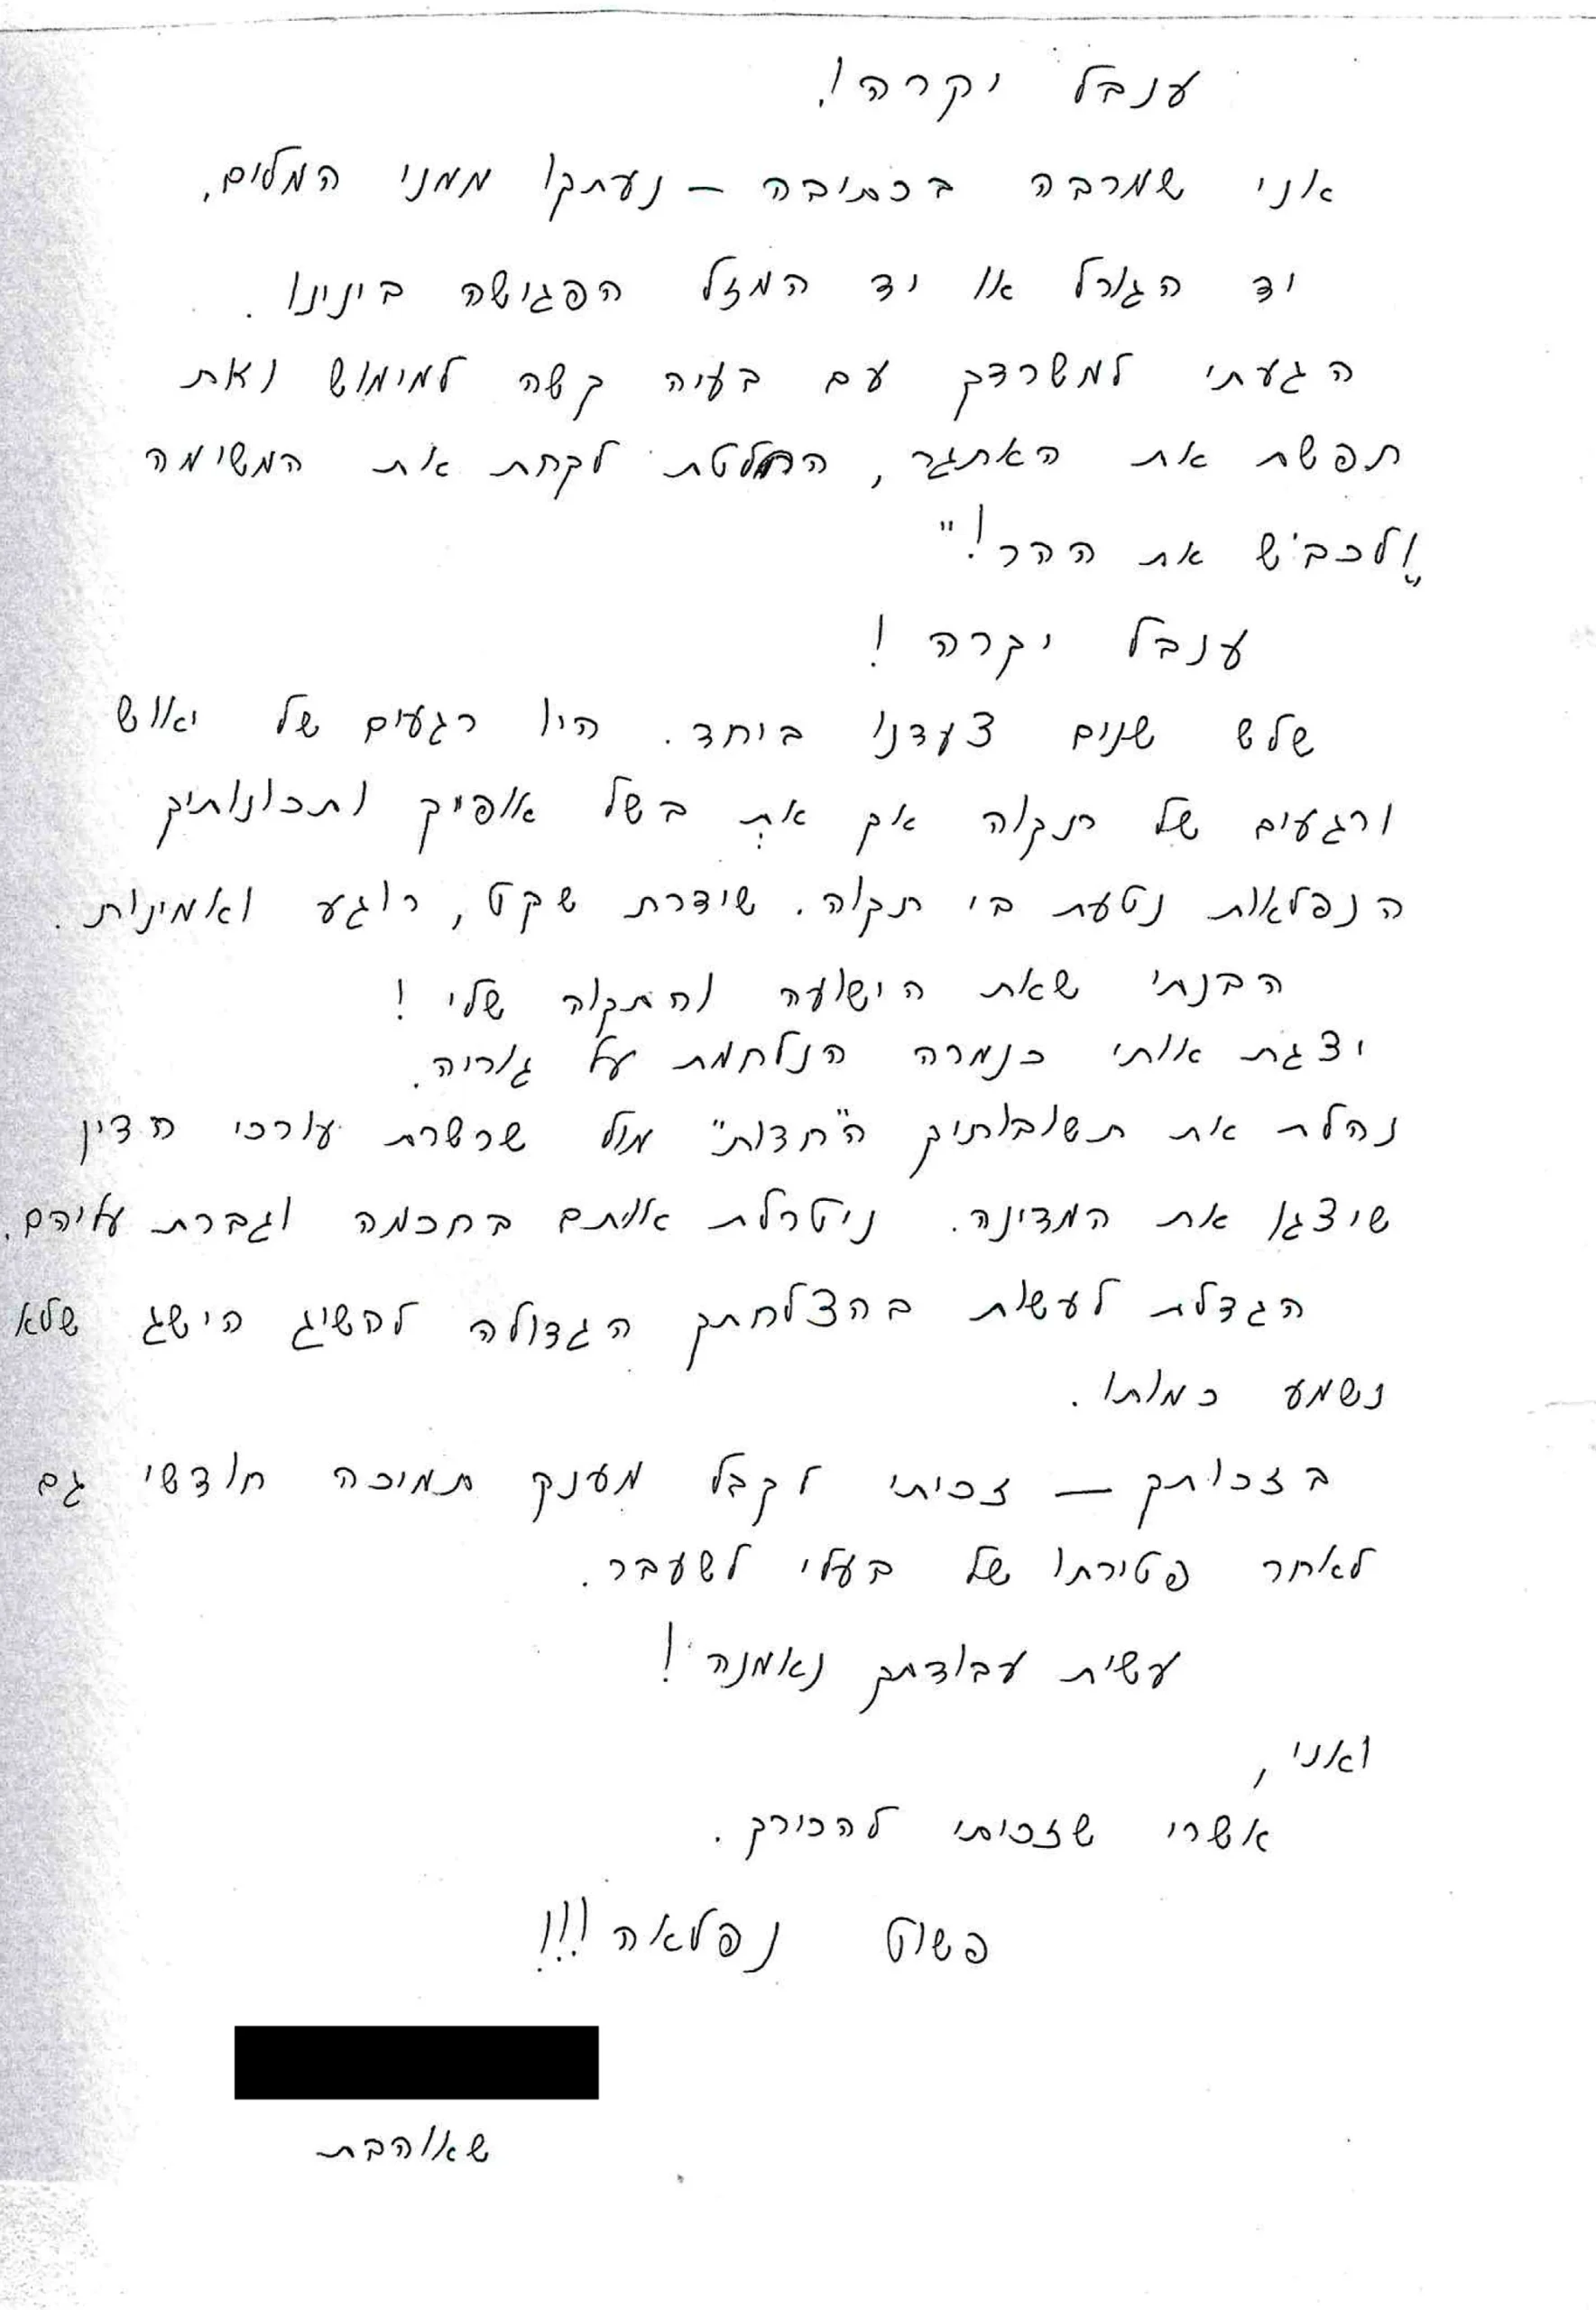 ענבל יקרה!
אני שמרבה בכתיבה – נעתקו ממני המלים.
יד הגורל או יד המזל הפגישה בינינו.
הגעתי למשרדך עם בעיה קשה למימוש ואת
תפשת את האתגר, החלטת לקחת את המשימה
"ולכבוש את ההר!"
ענבל יקרה!
שלש שנים צעדנו ביחד. היו רגעים של יאוש
ורגעים של תקוה אך את בשל אופייך ותכונותיך
הנפלאות נטעת בי תקוה. שידרת שקט, רוגע ואמינות.
הבנתי שאת הישועה והתקוה שלי!
יצגת אותי כנמרה הנלחמת על גוריה.
נהלת את תשובותיך ה"חדות" מול שרשרת עורכי הדין
שיצגו את המדינה. ניטרלת אותם בחכמה וגברת עליהם.
הגדלת לעשות בהצלחתך הגדולה להשיג הישג שלא
נשמע כמותו.
בזכותך – זכיתי לקבל מענק תמיכה חודשי גם
לאחר פטירתו של בעלי לשעבר.
עשית עבודתך נאמנה!
ואני,
אשרי שזכיתי להכירך.
פשוט נפלאה!!!
שאוהבת